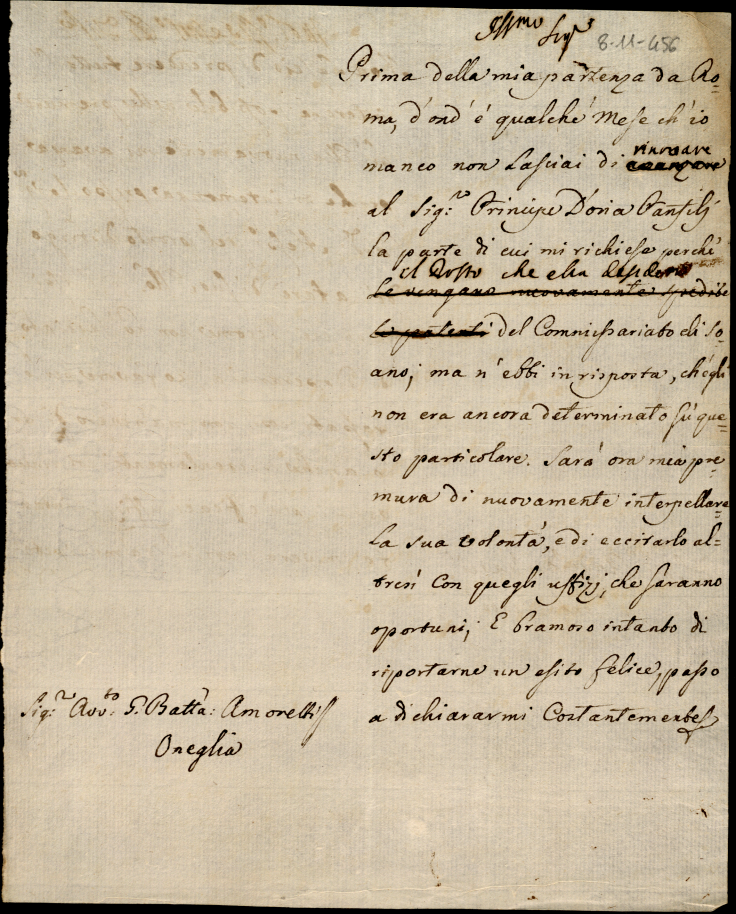 Ill.mo Sig.r
8-11-456
Prima della mia partenza da Ro=
ma, d'ond' é qualche Mese ch'io
manco non Lasciai di
al Sig.re Principe D'oria Panfilj
la parte di cui mi richiese perché
il Posto che ella desidera
Le vengano nuovamente spedite
le patenti del Commissariato di So=
ano; ma n'ebbi in risposta, ch'egli
non era ancora determinato sú que=
sto particolare. Sará ora mia pre=
mura di nuovamente interpellare
La sua volontá, e di eccitarlo al=
tresì con quegli uffizj, che saranno
oportuni; E bramoso intanto di
riportarne un esito felice, passo
a dichiararmi Costantemente
Sig.re Avv.to G. Batt.a: Amoretti
Oneglia